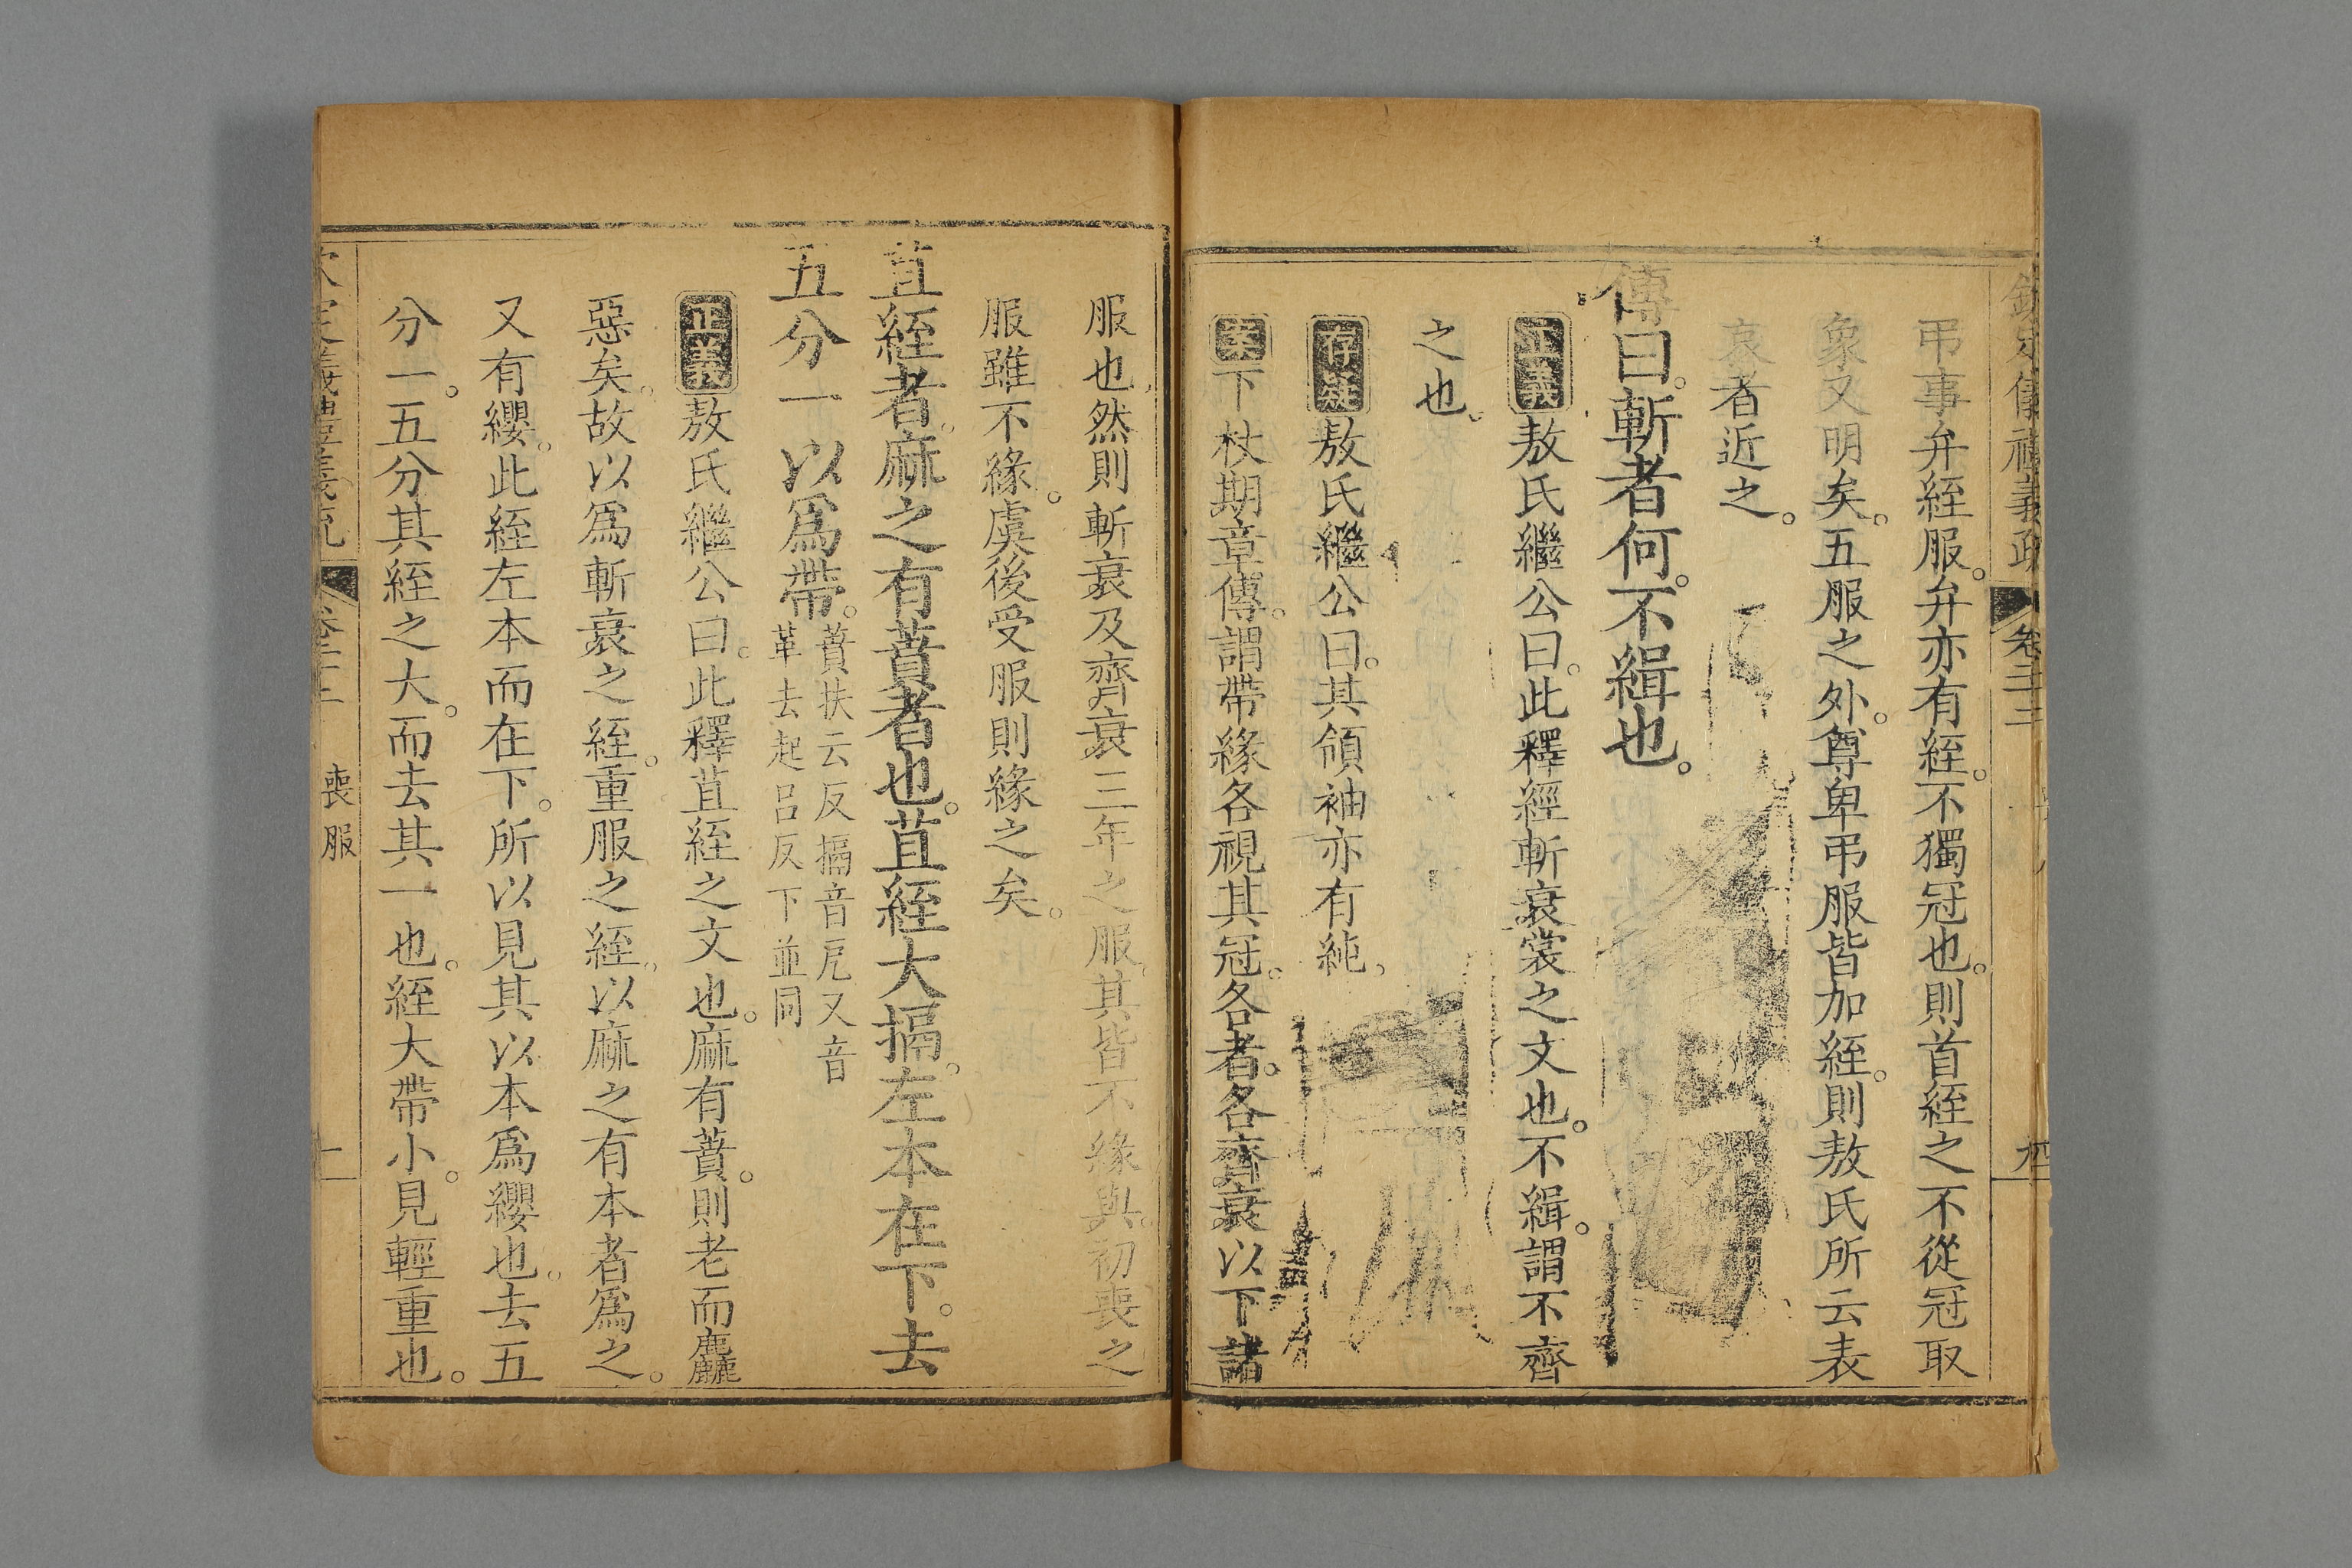 弔事弁絰服。弁亦有絰。不獨冠也。則首絰之不從冠取
象又明矣。五服之外。尊卑弔服皆加絰。則敖氏所云表
哀者近之。
傳曰。斬者何。不緝也。
正義敖氏繼公曰。此釋經斬衰裳之文也。不緝。謂不齊
之也。
存疑敖氏繼公曰。其領袖亦有純。
案下杖期章傳。謂帶緣各視其冠。各者。各齊衰以下諸
服也。然則斬衰及齊衰三年之服。其皆不緣與。初喪之
服雖不緣。虞後受服則緣之矣。
苴絰者。麻之有蕡者也。苴絰大搹。左本在下。去
五分一以爲帶。蕡扶云反搹音戹又音
革去起呂反下並同
正義敖氏繼公曰。此釋苴絰之文也。麻有蕡。則老而麤
惡矣。故以爲斬衰之絰。重服之絰。以麻之有本者爲之。
又有纓。此絰左本而在下。所以見其以本爲纓也。去五
分一。五分其絰之大。而去其一也。絰大帶小。見輕重也。
卷二十二 喪服